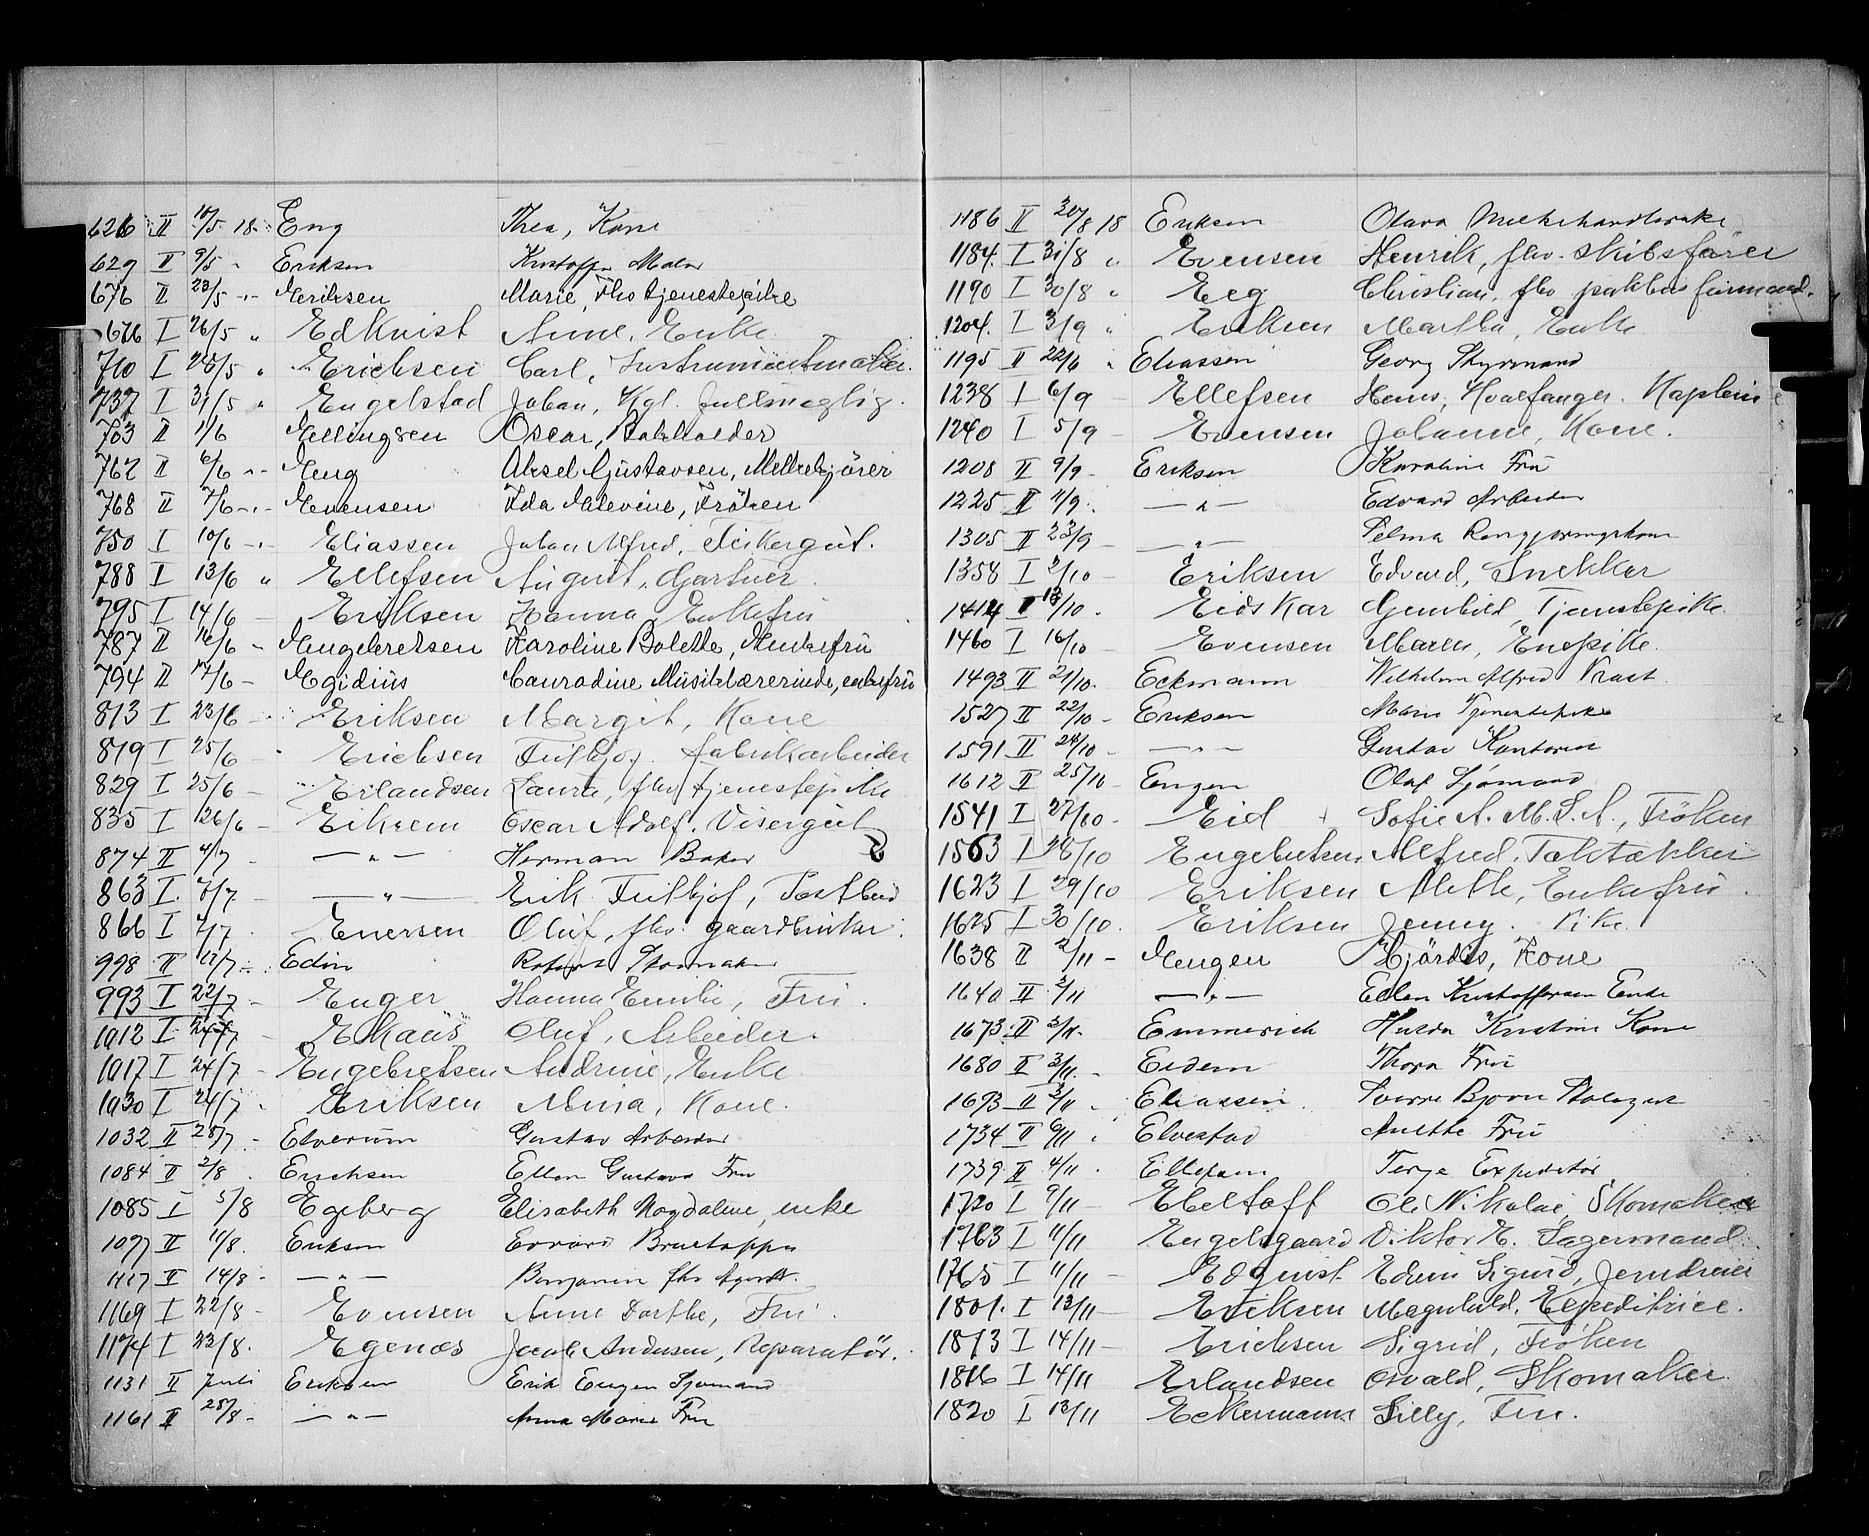 626 II 10/5 18 Eng Thea, Kone
629 II 9/5 " Eriksen Kristoffer Maler
676 II 23/5 " Eriksen Marie, fhv tjenestepike
676 I 26/5 " Edkvist Anne, Enke
710 I 28/5 " Erichsen Carl, Instrumentmaker.
737 I 31/5 " Engelstad Johan, Kgl. fuldmægtig.
763 II 1/6 Ellingsen Oscar, Bokholder
762 II 6/6 " Eng Aksel Gustavsen, Melkekjörer
768 II 7/6 " Evensen Ida Malevine, Fröken
750 I 10/6 " Eliassen Johan Alfred, Visergut.
788 I 13/6 " Ellefsen August, Gartner.
795 I 14/6 Eriksen Hanna Enkefru
787 II 16/6 Engebretsen Karoline Bolette, Enkefru
794 II 17/6 Egidius Conradine Musiklærerinde, enkefru
813 I 23/6 Eriksen Margit, Kone
819 I 25/6 Erichsen Fritjof. fabrikarbeider
829 I 25/6 Erlandsen Laura, fhv tjenestepike
835 I 26/6 Eikrem Oscar Adolf. Visergut
874 II 4/7 — " — Herman Baker
863 I. 7/7 — " — Erik Fritjof, Postbud
866 I 7/7 Enersen Oluf, fhv. gaardbruker.
998 II 17/7 Edin Robert Skomaker
993 I 22/7 Enger Hanna Emilie, Fru.
1012 I 24/7 Ekaas Oluf, Arbeider.
1017 I 24/7 Engebretsen Andrine, Enke
1030 I 24/7 Eriksen Mina, Kone.
1032 II 28/7 Elverum Gustav Arbeider
1084 II 2/8 Erichsen Ellen Gustava Fru
1085 I 5/8 Egeberg Elisabeth Magdalene, enke
1097 II 11/8. Eriksen Edvard
1117 II 14/8 — " — Benjamin fhv Agent.
1169 I 22/8 Evensen Anne Dorthe, Fru
1174 I 23/8. Egenæs Jacob Andersen, Reparatör.
1131 II Juli Eriksen Erik Eugen Sjömand
1161 II 28/8 — " — Anna Marie Fru
1186 II 30/8 18 Eriksen Olava
1184. I 31/8 " Evensen Henrik, fhv. skibsförer
1190 I 30/8 " Eeg Christian, fhv pakhusformand.
1204. I 3/9 " Eriksen Martha, Enke
1195 II 22/6 " Eliassen Georg Styrmand
1238 I 6/9 Ellefsen Hans, Hvalfanger. Kaptein
1240 I 5/9 Evensen Johanne, Kone.
1208 II 9/9 Eriksen Karoline Fru
1225 II 11/9 — " — Edvard Arbeider
1305 II 23/9 — " — Selma Rengjøringskone
1358 I 2/10 Eriksen Edvard, Snekker
1414 I 13/10. Eidskar Gunhild, Tjenstepike.
1460 I 16/10 Evensen Maren, Enepike.
1493 II 21/10. Eckmann Wilhelm Alfred
1527 II 22/10 Eriksen Marie Tjenestepike
1591 II 24/10 — " — Gustav Kontorist
1612 II 25/10 Engen Olaf Sjömand
1541 I 27/10 Eid Sofie A. M. S. A., Fröken
1563 I 28/10 Engebretsen Alfred, Taktækker
1623 I 29/10 Eriksen Mette, Enkefru.
1625 I 30/10. Eriksen Jenny. Pike.
1638 II 2/11 Engen Hjördis, Kone
1640 II 2/11 — " — Ellen Kristoffersen Enke
1673 II 3/11. Emmerich Hulda Kristine Kone
1680 II 3/11. Eidem Thora Fru
1693 II 3/11 Eliassen Sverre Bjorn
1734 II 6/11 Elvestad Anette Fru
1739 II 4/11. Ellefsen Terje Expeditör
1720 I 9/11 Ebeltoft Ole Nikolai, Skomaker
1763 I 11/11 Engelsgaard Viktor E. Lagermand
1765 I 11/11 Edquist Edvin Sigurd, Jerndreier
1801. I 13/11 Eriksen Magnhild, Expeditrice.
1813 I 14/11 Erichsen Sigrid, Fröken
1816 I 14/11 Erlandsen Osvald, Skomaker.
1820 I 13/11 Eckermann Silly, Fru.